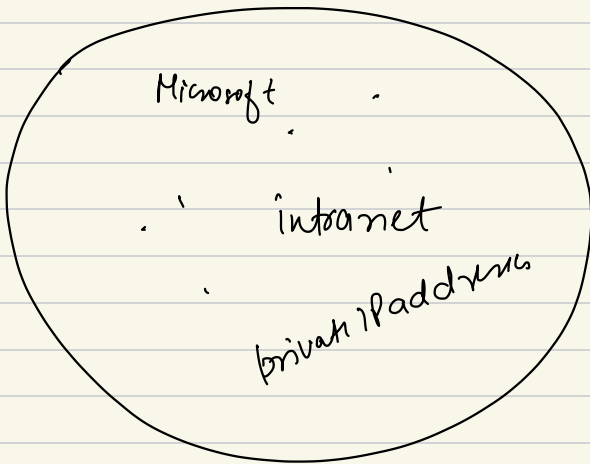 Microsoft
intranet
private IP addresses